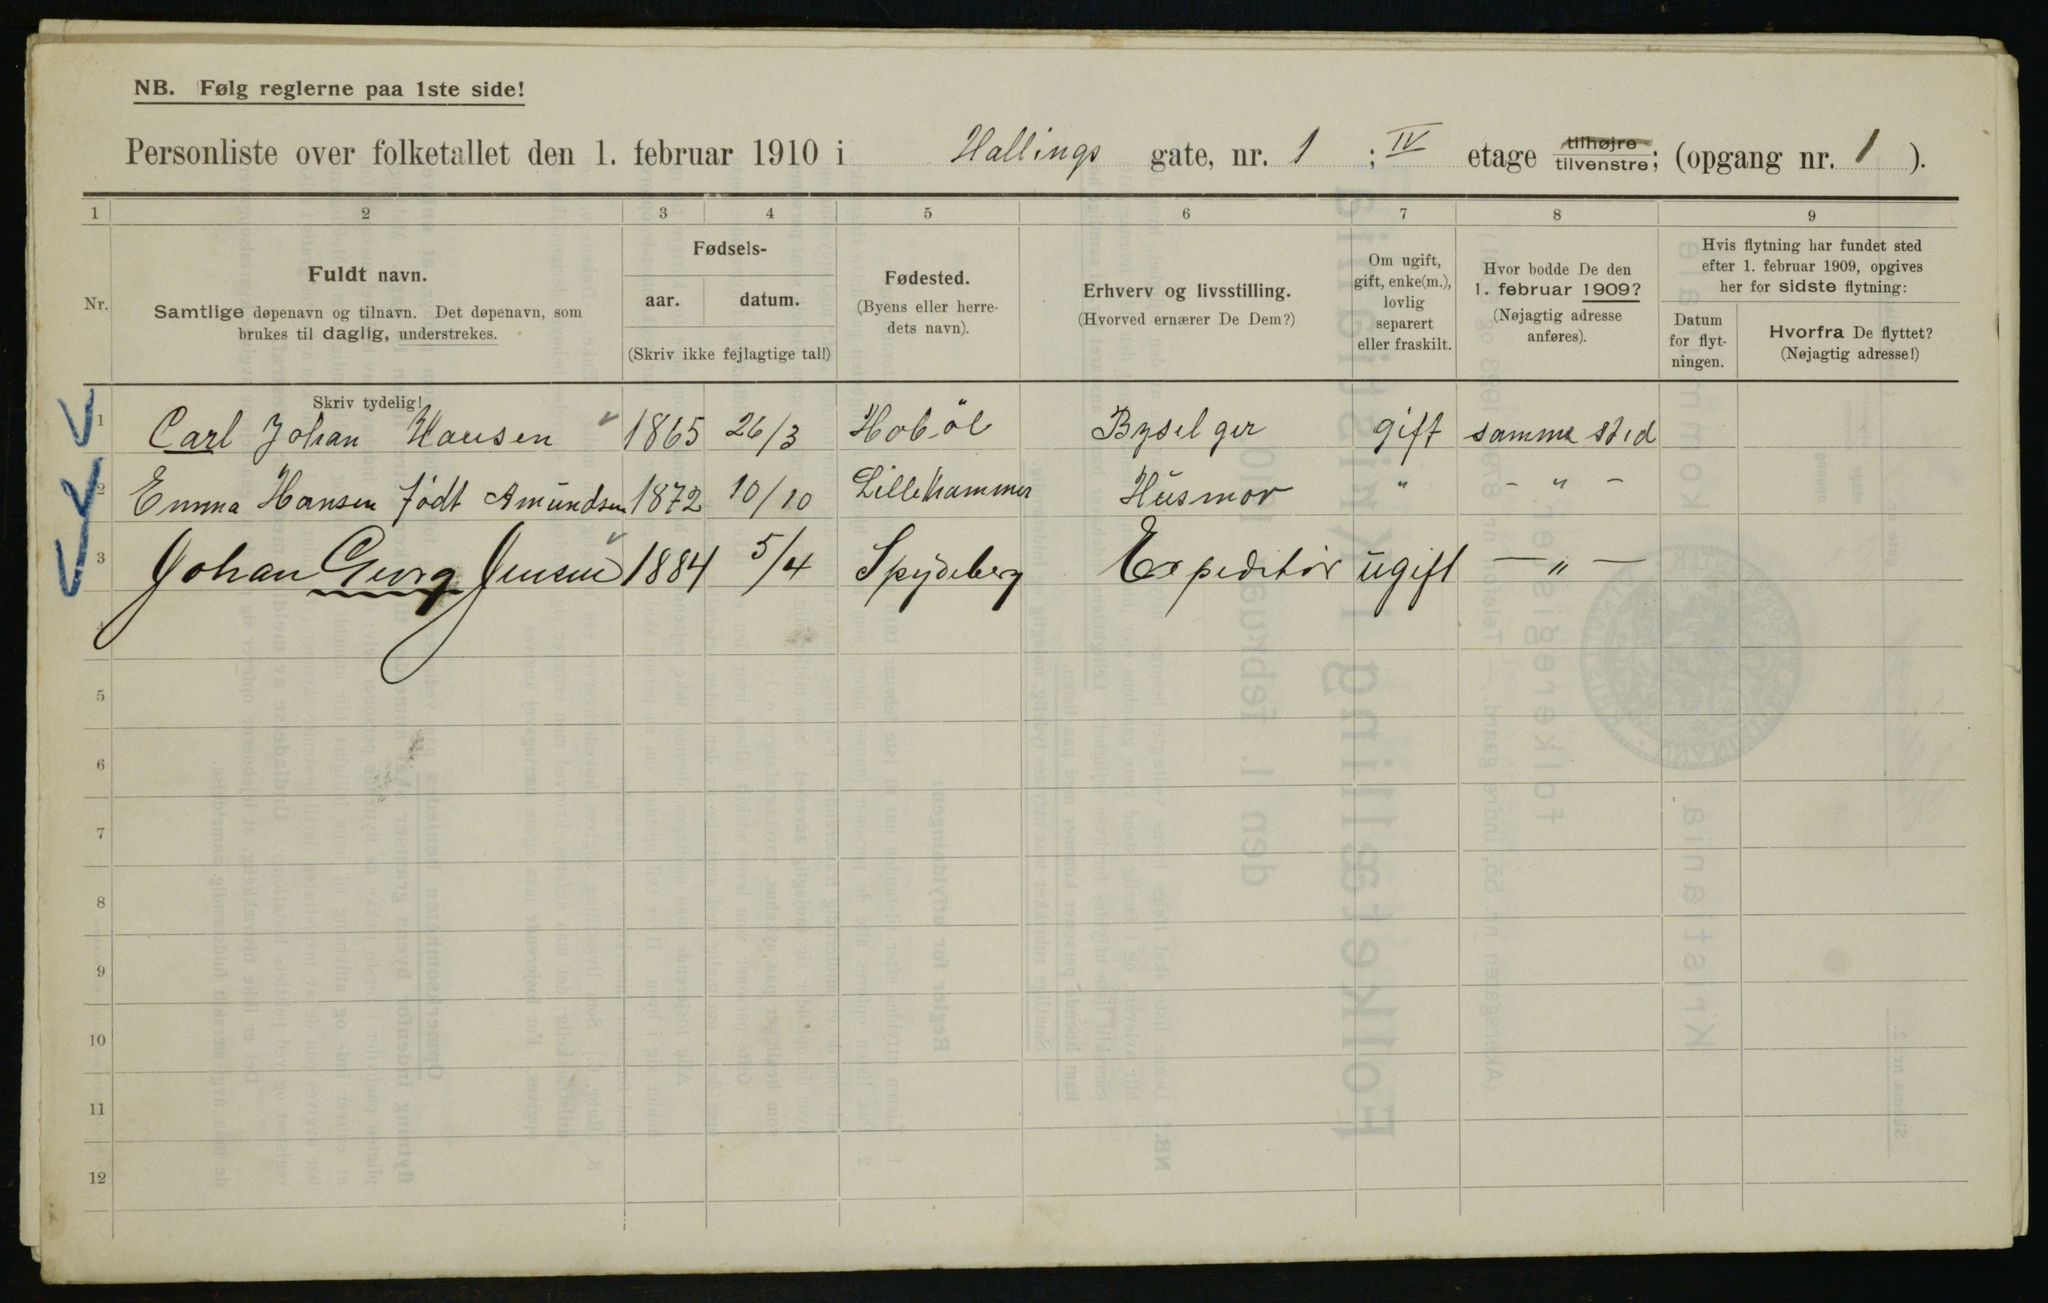 NB. Følg reglerne paa 1ste side!
Personliste over folketallet den 1. februar 1910 i Hallings gate, nr. 1 ; IV etage tilhøjre tilvenstre; (opgang nr. 1 ).
1 2 3 4 5 6 7 8 9
Nr.
Fuldt navn.
Samtlige døpenavn og tilnavn. Det døpenavn, som
brukes til daglig, understrekes.
Skriv tydelig!
Fødsels-
aar. datum.
(Skriv ikke fejlagtige tal!)
Fødested.
(Byens eller herre-
dets navn).
Erhverv og livsstilling.
(Hvorved ernærer De Dem?)
Om ugift,
gift, enke(m.),
lovlig
separert
eller fraskilt.
Hvor bodde De den
1. februar 1909?
(Nøjagtig adresse
anføres).
Hvis flytning har fundet sted
efter 1. februar 1909, opgives
her for sidste flytning:
Datum
for flyt-
ningen.
Hvorfra De flyttet?
(Nøjagtig adresse!)
1 Carl Johan Hansen 1865 26/3 Hoböl Byselger gift samme sted
2 Emma Hansen födt Amundsen 1872 10/10 Lillehammer Husmor " - " -
3 Johan Georg Jensen 1884 5/4 Spydeberg Expeditör ugift — " —
4
5
6
7
8
9
10
11
12